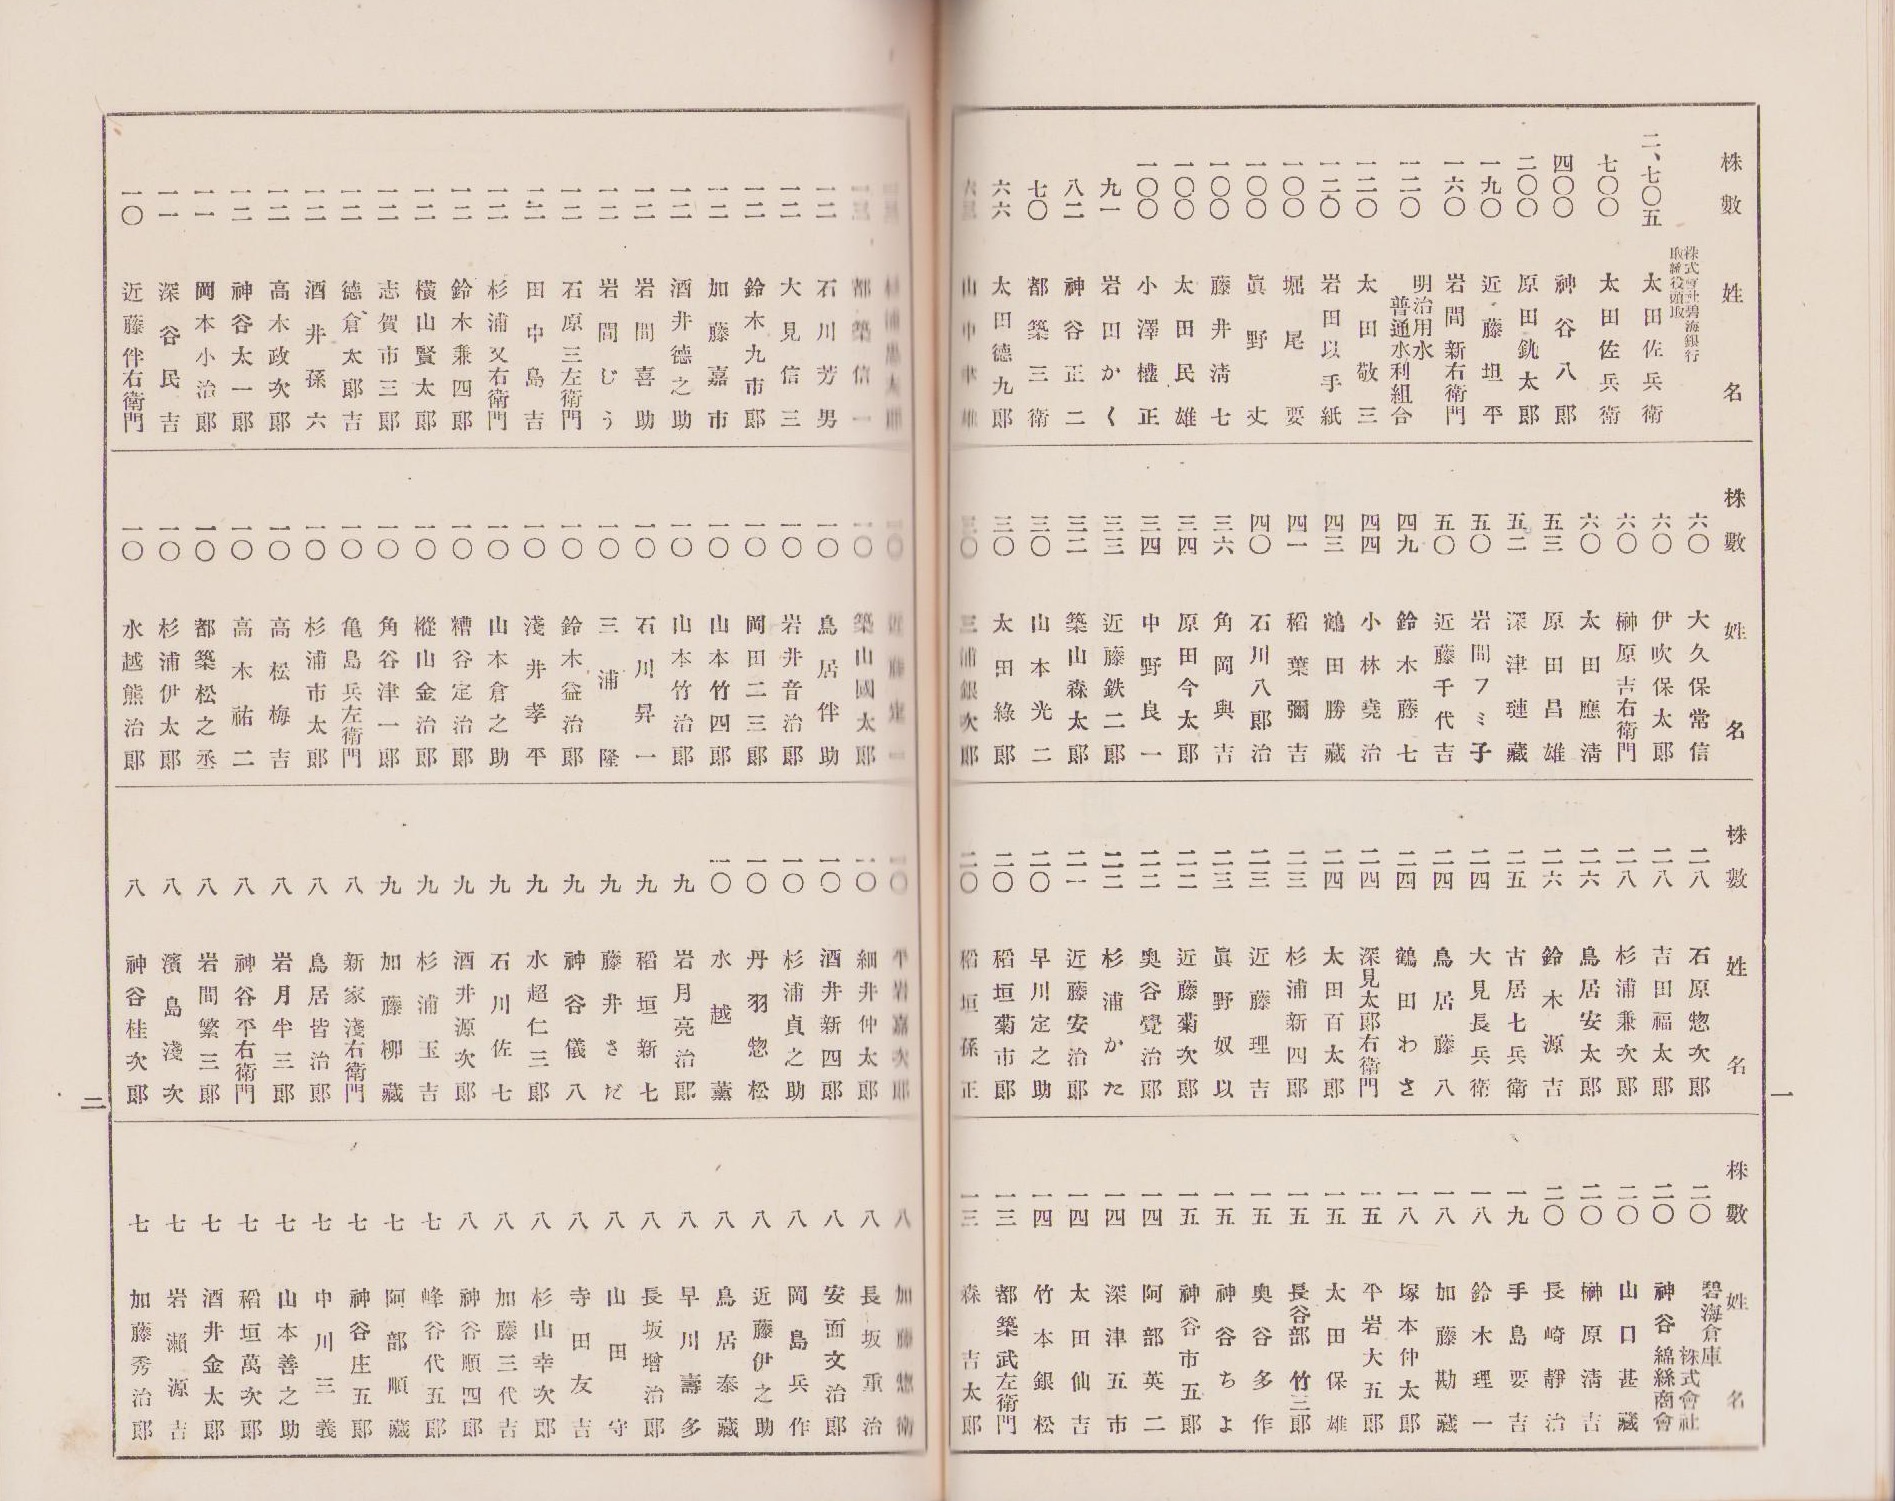 株數 姓名
二、七〇五 株式會社碧海銀行取締役頭取 太田佐兵衛
七〇〇 太田佐兵衛
四〇〇 神谷八郎
二〇〇 原田釚太郎
一九〇 近藤坦平
一六〇 岩間新右衛門
一二〇 明治用水普通水利組合
一二〇 太田敬三
一二〇 岩田以手紙
一〇〇 堀尾要
一〇〇 眞野丈
一〇〇 藤井淸七
一〇〇 太田民雄
一〇〇 小澤櫨正
九一 岩田かく
八二 神谷正二
七〇 都築三衛
六六 太田德九郎
山中
株數 姓名
六〇 大久保常信
六〇 伊吹保太郎
六〇 榊原吉右衛門
六〇 太田應淸
五三 原田昌雄
五二 深津璉藏
五〇 岩間フミ子
五〇 近藤千代吉
四九 鈴木藤七
四四 小林堯治
四三 鶴田勝藏
四一 稻葉彌吉
四〇 石川八郎治
三六 角岡與吉
三四 原田今太郎
三四 中野良一
三三 近藤鉄二郎
三二 築山森太郎
三〇 山本光二
三〇 太田綠郎
三〇 三浦銀次郎
株數 姓名
二八 石原惣次郎
二八 吉田福太郎
二八 杉浦兼次郎
二六 鳥居安太郎
二六 鈴木源吉
二五 古居七兵衛
二四 大見長兵衛
二四 鳥居藤八
二四 鶴田わさ
二四 深見太郎右衛門
二四 太田百太郎
二三 杉浦新四郎
二三 近藤理吉
二三 眞野奴以
二二 近藤菊次郎
二二 奥谷覺治郎
二二 杉浦かた
二一 近藤安治郎
二〇 早川定之助
二〇 稻垣菊市郎
二〇 稻垣孫正
株數 姓名
二〇 碧海倉庫株式會社
二〇 神谷綿絲商會
二〇 山口甚藏
二〇 榊原淸吉
二〇 長崎靜治
一九 手島要吉
一八 鈴木理一
一八 加藤勘藏
一八 塚本仲太郎
一五 平岩大五郎
一五 太田保雄
一五 長谷部竹三郎
一五 奥谷多作
一五 神谷ちよ
一五 神谷市五郎
一四 阿部英二
一四 深津五市
一四 太田仙吉
一四 竹本銀松
一三 都築武左衛門
一三 森吉太郎
一
都築信一
一二 石川芳男
一二 大見信三
一二 鈴木九市郎
一二 加藤嘉市
一二 酒井德之助
一二 岩間喜助
一二 岩間じう
一二 石原三左衛門
一二 田中島吉
一二 杉浦又右衛門
一二 鈴木兼四郎
一二 橫山賢太郎
一二 志賀市三郎
一二 德倉太郎吉
一二 酒井孫六
一二 高木政次郎
一二 神谷太一郎
一一 岡本小治郎
一一 深谷民吉
一〇 近藤伴右衛門
一〇 近藤定一
一〇 築山國太郎
一〇 鳥居伴助
一〇 岩井音治郎
一〇 岡田二三郎
一〇 山本竹四郎
一〇 山本竹治郎
一〇 石川昇一
一〇 三浦隆
一〇 鈴木益治郎
一〇 淺井孝平
一〇 山木倉之助
一〇 糟谷定治郎
一〇 樅山金治郎
一〇 角谷津一郎
一〇 亀島兵左衛門
一〇 杉浦市太郎
一〇 高松梅吉
一〇 高木祐二
一〇 都築松之丞
一〇 杉浦伊太郎
一〇 水越熊治郎
一〇 平岩嘉次郎
一〇 細井仲太郎
一〇 酒井新四郎
一〇 杉浦貞之助
一〇 丹羽惣松
一〇 水越薰
九 岩月亮治郎
九 稻垣新七
九 藤井さだ
九 神谷儀八
九 水超仁三郎
九 石川佐七
九 酒井源次郎
九 杉浦玉吉
九 加藤柳藏
八 新家淺右衛門
八 鳥居皆治郎
八 岩月半三郎
八 神谷平右衛門
八 岩間繁三郎
八 濱島淺次
八 神谷桂次郎
八 加藤惣衛
八 長坂重治
八 安面文治郎
八 岡島兵作
八 近藤伊之助
八 鳥居泰藏
八 早川壽多
八 長坂增治郎
八 山田守
八 寺田友吉
八 杉山幸次郎
八 加藤三代吉
八 神谷順四郎
七 峰谷代五郎
七 阿部順藏
七 神谷庄五郎
七 中川三義
七 山本善之助
七 稻垣萬次郎
七 酒井金太郎
七 岩瀨源吉
七 加藤秀治郎
二